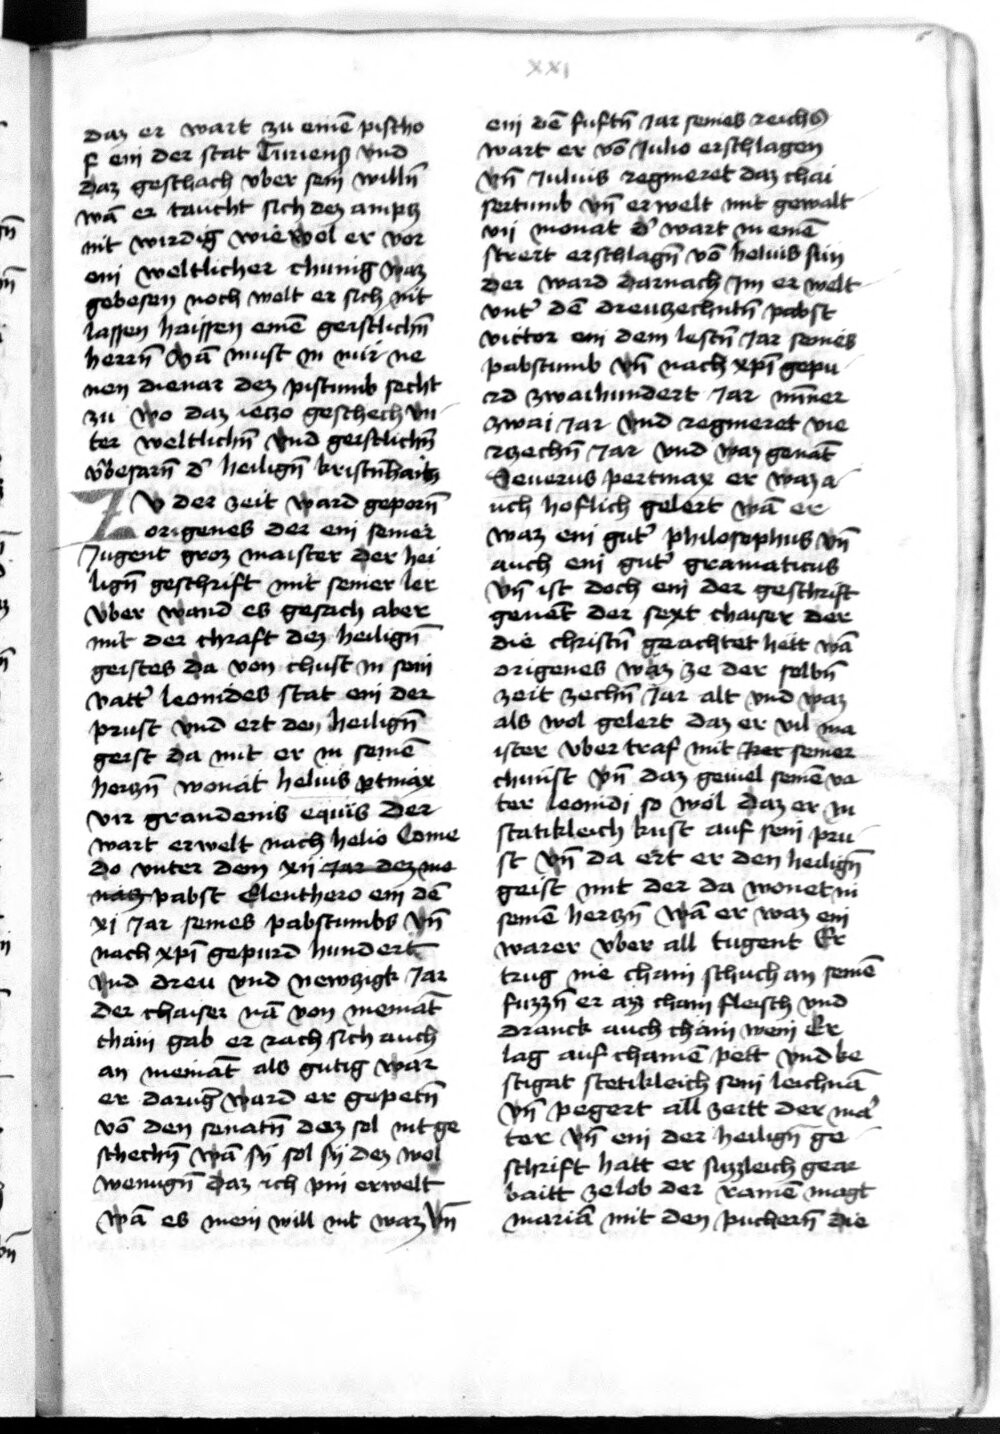 XXI
daz er wart zu einē pischo
f ein der stat Tiriensz vnd
daz geschach vber sein willn̄
wā er taucht sich dez ampz
nit wirdig wie wol er vor
ein weltlicher chunig waz
gebesen noch welt er sich nit
lassen haissen einē geistlichn̄
herrn̄ wā must in mir ne
nen dienar dez pistumb secht
zu wo daz ieczo geschech vn
ter weltlichn̄ vnd geistlichn̄
v̄besarn̄ d' heilign̄ kristn̄haitz
Zv der zeit ward geporn̄
origenes der ein seiner
Jugent groz maister der hei
lign̄ geschrift mit seiner ler
vber wand es gesach aber
mit der chraft dez heilign̄
geistes da von chust in sein
vatt' leonides stat ein der
prust vnd ert den heilign̄
geist da mit er in seinē
herczn̄ wonat helius p̄tinax
vir grandenis equus der
wart erwelt nach helio Come
do vnter dem xii Jar dez mo
natz pabst Elenthero ein dē
xi Jar seines pabstumbs vn̄
nach xp̄i gepurd hundert
vnd dreu vnd newczigk Jar
der chaiser nā von niemāt
chain gab er rach sich auch
an niemāt als gutig war
er darug' ward er gepetn̄
vō den senatn̄ dez sol nit ge
schechn̄ wā sy sol sy dez wol
wenugn̄ daz ich pin erwelt
wā es mein will nit waz vn̄
ein dē fuftn̄ Jar seines reichs
wart er vō Julio erschlagen
vn̄ Julius regnieret daz chai
sertumb vn̄ erwelt mit gewalt
vii monat d' wart in einē
streit erschlagn̄ vō helius sun
der ward darnach Im erwelt
vnt' dē dreuzechntn̄ pabst
victor ein dem lestn̄ Jar seines
pabstumb vn̄ nach xp̄i gepu
rd zwaihundert Jar mn̄er
zwai Jar vnd regnieret vie
rzechn̄ Jar vnd waz genāt
Seuerus pertinax er waz a
uch hoflich gelert wā er
waz ein gut' philosophus vn̄
auch ein gut' gramaticus
vn̄ ist doch ein der geschrift
genēt der sext chaiser der
die christn̄ geachtet hett wā
origenes waz ze der selbn̄
zeit zechn̄ Jar alt vnd waz
als wol gelert daz er vil ma
ister vber traf mit seiner
chunst vn̄ daz geuiel seinē va
ter leonidi so wol daz er in
statikleich kust auf sein pru
st vn̄ da ert er den heilign̄
geist mit der da wonet in
seinē herczn̄ wā er waz ein
warer vber all tugent Er
trug nie chain schuch an seinē
fuzzn̄ er az chain fleisch vnd
dranck auch chain wein Er
lag auf chainē pett vnd ke
stigat stetikleich sein leichnā
vn̄ pegert all zeitt der mar'
ter vn̄ ein der heilign̄ ge
schrift hatt er suzzleich gear
baitt ze lob der rainē magt
mariā mit den puchern̄ die